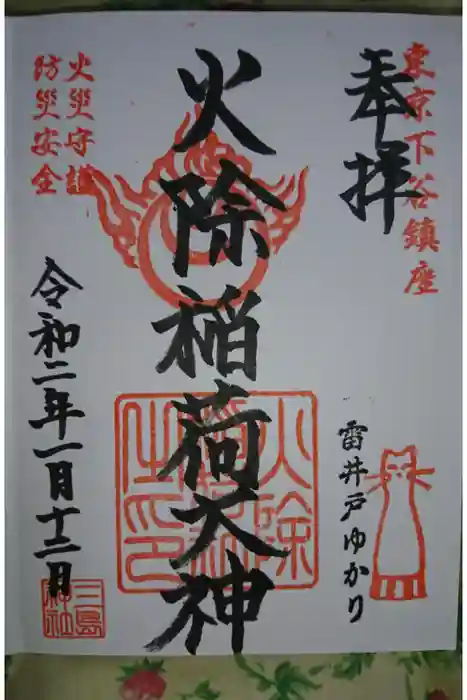 東京下谷鎮座
奉拝
雷井戸ゆかり
火除稲荷大神
火除
稲荷神社
之印
火災守護
防災安全
令和二年一月十二日
三島
神社